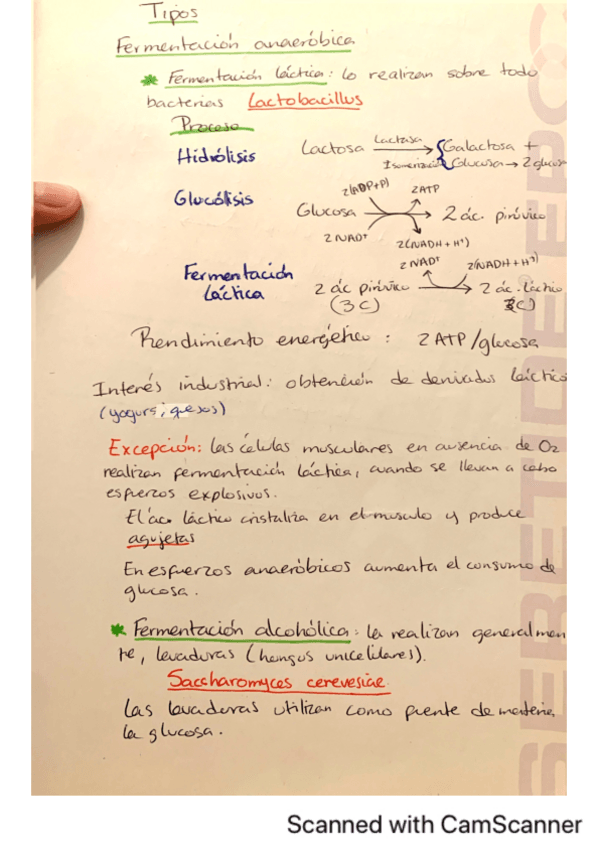 Tipos
Fermentación anaeróbica
* Fermentación láctica: lo realizan sobre todo
bacterias Lactobacillus
Proceso
Hidrólisis Lactosa Lactasa Galactosa +
Isomerización Glucosa → 2 glucos
Glucólisis 2(ADP+P) 2ATP
Glucosa → 2 ác. pirúvico
2 NAD+ 2(NADH + H+)
Fermentación 2 NAD+ 2(NADH + H+)
láctica 2 ác pirúvico → 2 ác. láctic
(3C) (3C)
Rendimiento energético: 2 ATP/glucosa
Interés industrial: obtención de derivados láctico
(yogurs, quesos)
Excepción: Las células musculares en ausencia de O2
realizan fermentación láctica, cuando se llevan a cabo
esfuerzos explosivos.
El ác. láctico cristaliza en el musculo y produce
agujetas
En esfuerzos anaeróbicos aumenta el consumo de
glucosa.
* Fermentación alcohólica: la realizan generalmen
te, levaduras (hongos unicelulares).
Saccharomyces cerevesiae
Las levaduras utilizan como fuente de materia,
la glucosa.
SEBETIDE
Scanned with CamScanner